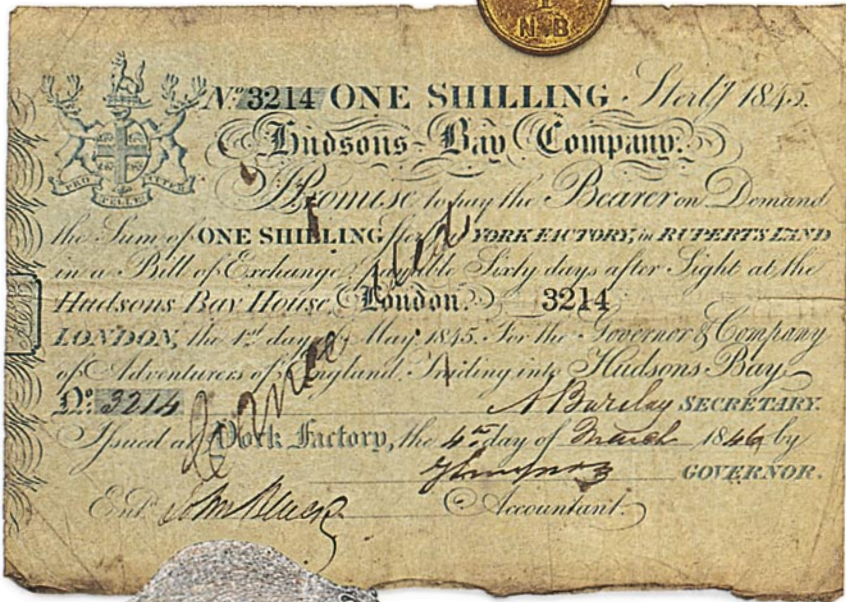 1
N B
No. 3214 ONE SHILLING Sterlg 1845.
Hudsons-Bay Company.
PRO PELLE CUTEM
I Promise to pay the Bearer on Demand
the Sum of ONE SHILLING Sterlg at YORK FACTORY, in RUPERTS LAND
in a Bill of Exchange Payable Sixty days after Sight at the
Hudsons Bay House London. 3214
LONDON, the 1st day of May 1845. For the Governor & Company
of Adventurers of England Trading into Hudsons Bay.
No. 3214 A Barclay SECRETARY.
Issued at York Factory, the 4th day of March 1846, by
GOVERNOR.
Entd John Black Accountant.
Cancelled